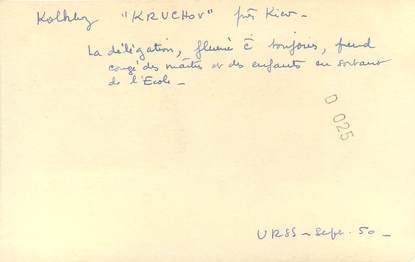 Kolkhoz "KRUCHOV" près Kiev -
La délégation, fleurie c toujours, prend
congé des maîtres et des enfants en sortant
de l'Ecole -
D 025
URSS - Sept. 50 -